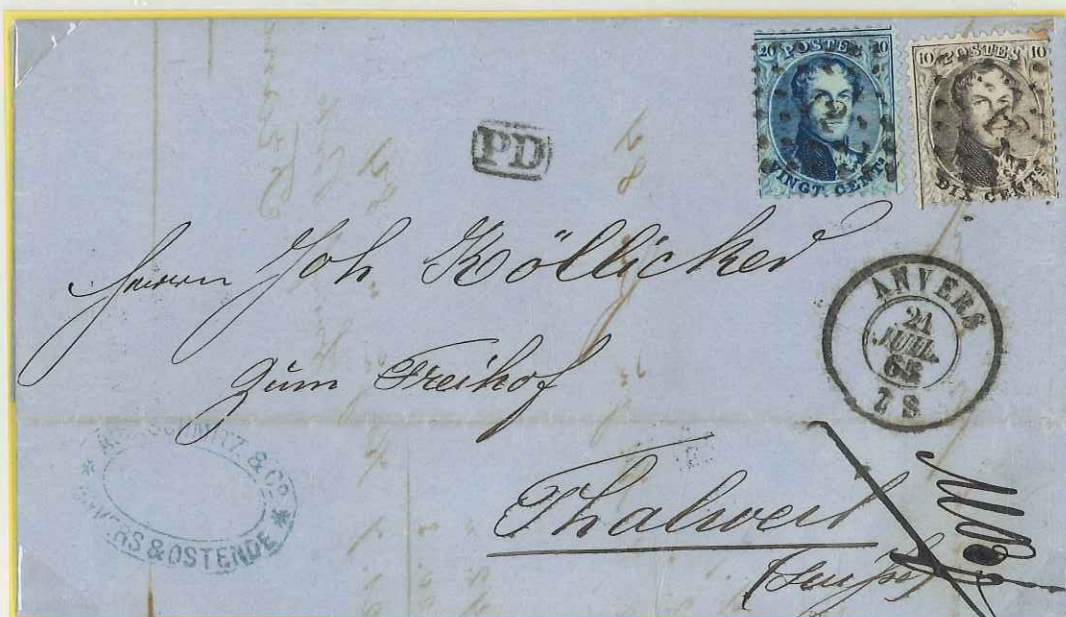 20 POSTES 10
VINGT CENTS
10 POSTES 10
DIX CENTS
PD
Herrn Joh Köllicker
ANVERS
21
JUIL
65
7 S
zum Freihof
SCHMITZ & Co
ANVERS & OSTENDE
Thalweil
(Suisse)